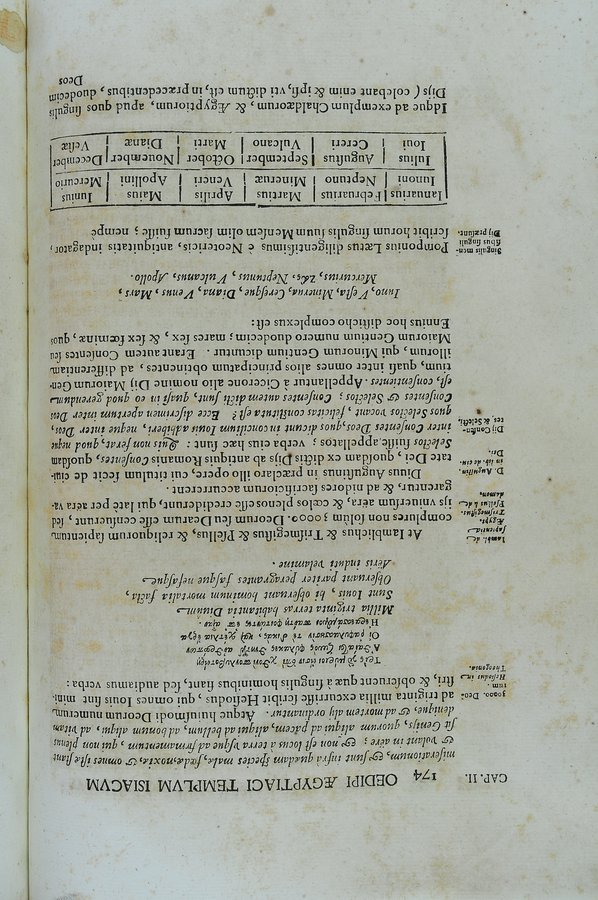 CAP. II. 174 OEDIPI ÆGYPTIACI TEMPLVM ISIACVM
miserationum, & sunt infra quædam species malæ, fœdæ, noxiæ, & omnes istæ fiunt
& volant in aëre; & non est locus à terra vsque ad firmamentum, qui non plenus
sit Genijs, quorum aliqui ad pacem, aliqui ad bellum, ad bonum aliqui, ad vitam
denique, & ad mortem alij ordinantur. Atque huiusmodi Deorum numerum
30000. Deo-
rum.
Hesiodus in
Theogonia.
ad triginta millia excurrisse scribit Hesiodus, qui omnes Iouis sint mini-
stri, & obseruent quæ à singulis hominibus fiant, sed audiamus verba:
Millia triginta terras habitantia Diuum
Sunt Iouis, hi obseruant hominum mortalia facta,
Obseruant pariter peragrantes fasque nefasque
Aëris induti velamine.
Iambl. de
sapientia
Ægypt.
Trismegistus.
Psellus l. de
dæmon.
At Iamblichus & Trismegistus & Psellus, & reliquorum sapientum
complures non solùm 30000. Deorum seu Dearum esse censuerunt, sed
ijs vniuersum aëra, & cœlos plenos esse crediderunt, qui late per aëra va-
garentur, & ad nidores sacrificiorum accurrerent.
D. Augustin.
in lib. de ciu.
Dei.
Diuus Augustinus in præclaro illo opere, cui titulum fecit de ciui-
tate Dei, quosdam ex dictis Dijs ab antiquis Romanis Consentes, quosdam
Selectos fuisse appellatos; verba eius hæc sunt: Quis non ferat, quod neque
Dij Consen-
tes, & Selecti.
inter Consentes Deos, quos dicunt in concilium Iouis adhiberi, neque inter Deos,
quos Selectos vocant, felicitas constituta est? Ecce discrimen apertum inter Deos
Consentes & Selectos; Consentes autem dicti sunt, quasi in eo quod gerendum
est, consentientes. Appellantur à Cicerone alio nomine Dij Maiorum Gen-
tium, quasi inter omnes alios principatum obtinentes, ad differentiam
illorum, qui Minorum Gentium dicuntur. Erant autem Consentes seu
Maiorum Gentium numero duodecim; mares sex, & sex fœminæ, quos
Ennius hoc disticho complexus est:
Iuno, Vesta, Minerua, Ceresque, Diana, Venus, Mars,
Mercurius, Neptunus, Vulcanus, Apollo.
Singulis men-
sibus singuli
Dij præsunt.
Pomponius Lætus diligentissimus è Neotericis, antiquitatis indagator,
scribit horum singulis suum Mensem olim sacrum fuisse; nempe
Ianuarius Februarius Martius Aprilis Maius Iunius
Iunoni Neptuno Mineruæ Veneri Apollini Mercurio
Iulius Augustus September October Nouember December
Ioui Cereri Vulcano Marti Dianæ Vestæ
Idque ad exemplum Chaldæorum, & Ægyptiorum, apud quos singulis
Dijs (colebant enim & ipsi, vti dictum est, in præcedentibus, duodecim
Deos